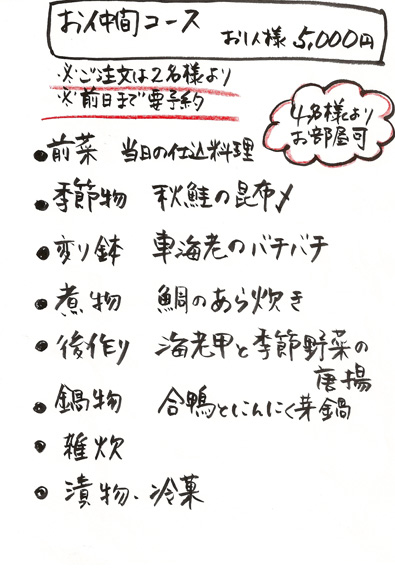 お仲間コース お1人様 5,000円
※ご注文は2名様より
※前日まで要予約
4名様より
お部屋可
●前菜 当日の仕込料理
●季節物 秋鮭の昆布〆
●変り鉢 車海老のバチバチ
●煮物 鯛のあら炊き
●後作り 海老甲と季節野菜の
唐揚
●鍋物 合鴨とにんにく芽鍋
●雑炊
●漬物、冷菓